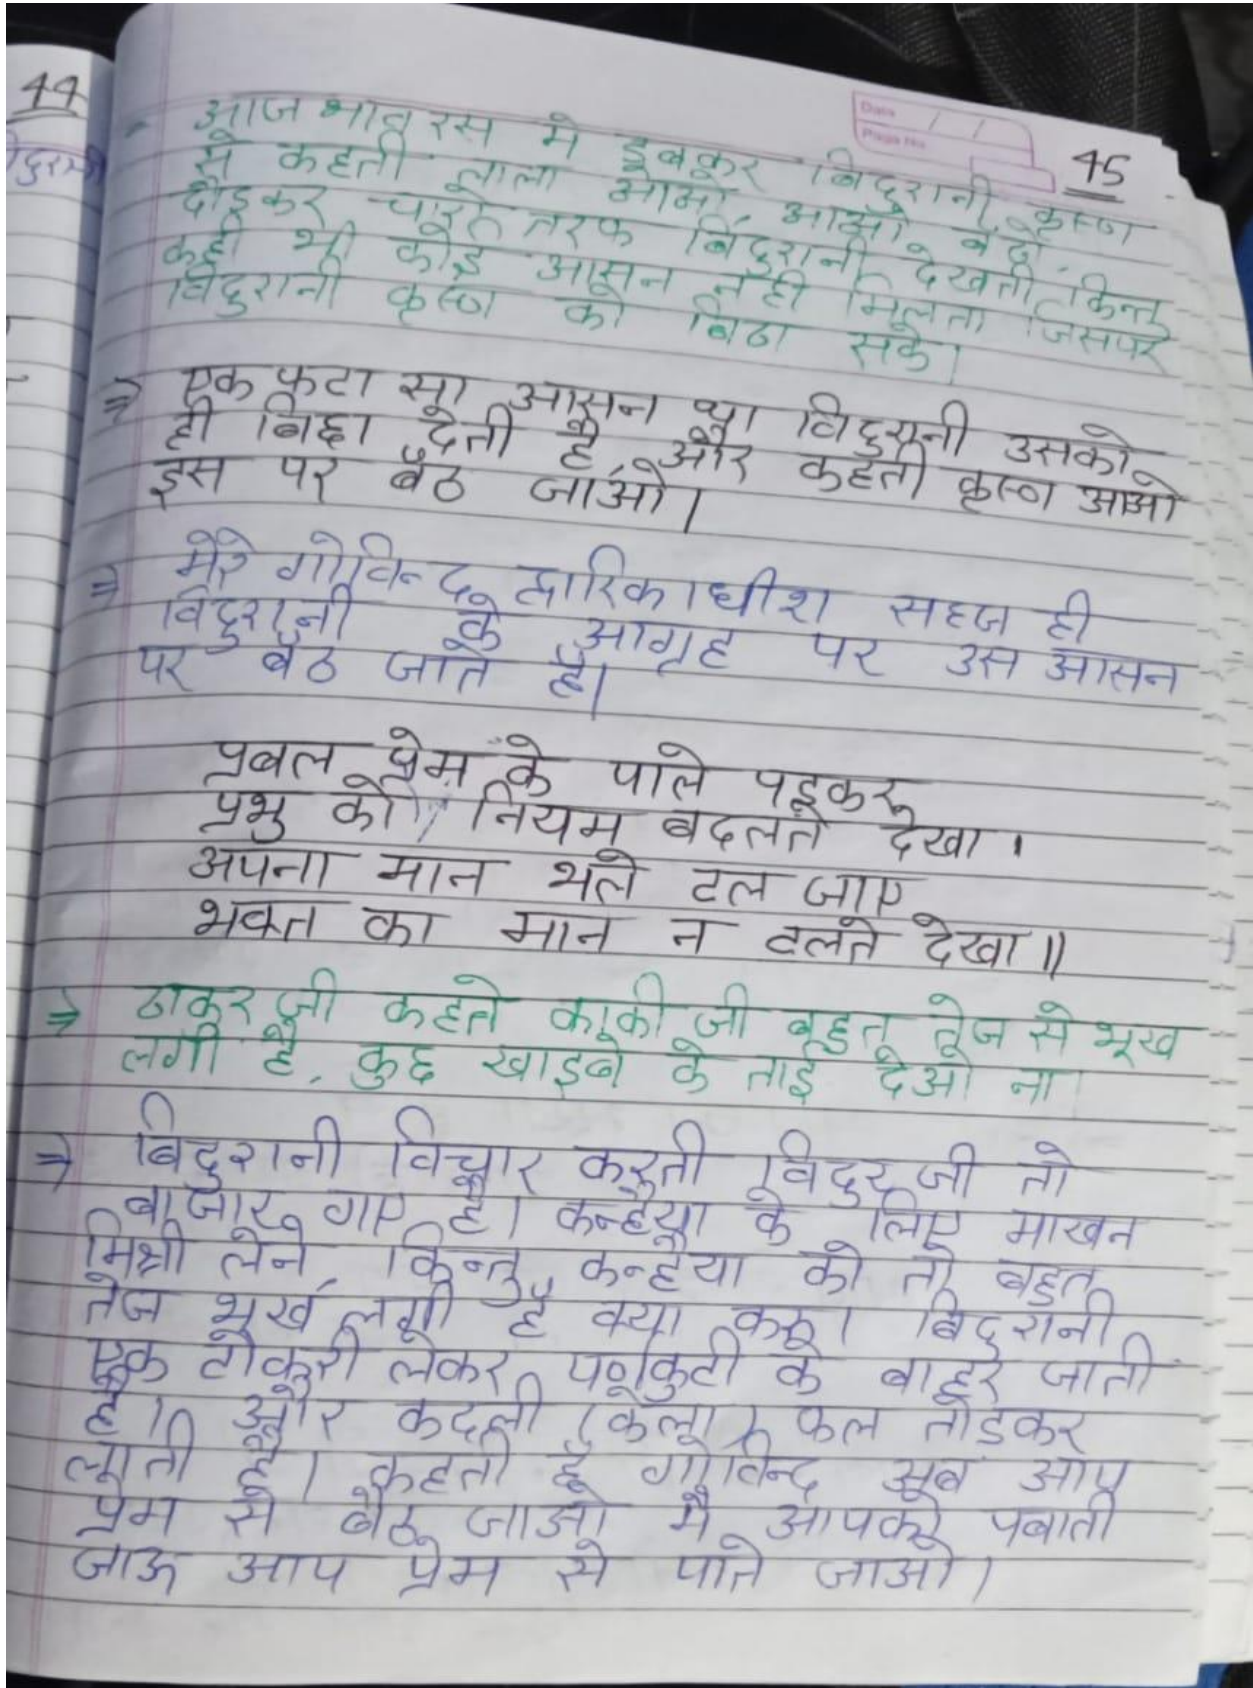 44
45
Date / /
Page No
आज भाव रस मे डुबकर बिदुरानी कृष्ण
से कहती लाला आओ आओ बैठो
दौड़कर चारो तरफ बिदुरानी देखती किन्तु
कही भी कोई आसन नही मिलता जिसपर
विदुरानी कृष्ण को बिठा सके।
⇒ एक फटा सा आसन था विदुरानी उसको
ही बिछा देती है और कहती कृष्ण आओ
इस पर बैठ जाओ।
⇒ मेरे गोविन्द द्वारिकाधीश सहज ही
विदुरानी के आग्रह पर उस आसन
पर बैठ जाते है।
प्रबल प्रेम के पाले पड़कर
प्रभु को नियम बदलते देखा ।
अपना मान भले टल जाए
भक्त का मान न टलते देखा ॥
⇒ ठाकुर जी कहते काकी जी बहुत तेज से भूख
लगी है, कुछ खाइबे के ताई देओ ना
⇒ बिदुरानी विचार करती विदुर जी तो
बाजार गए है। कन्हैया के लिए माखन
मिश्री लेने, किन्तु कन्हैया को तो बहुत
तेज भूख लगी है क्या करू। बिदुरानी
एक टोकरी लेकर पर्णकुटी के बाहर जाती
है। और कदली (केला) फल तोडकर
लाती है। कहती है गोविन्द अब आप
प्रेम से बैठ जाओ मै आपको पवाती
जाऊ आप प्रेम से पाते जाओ।